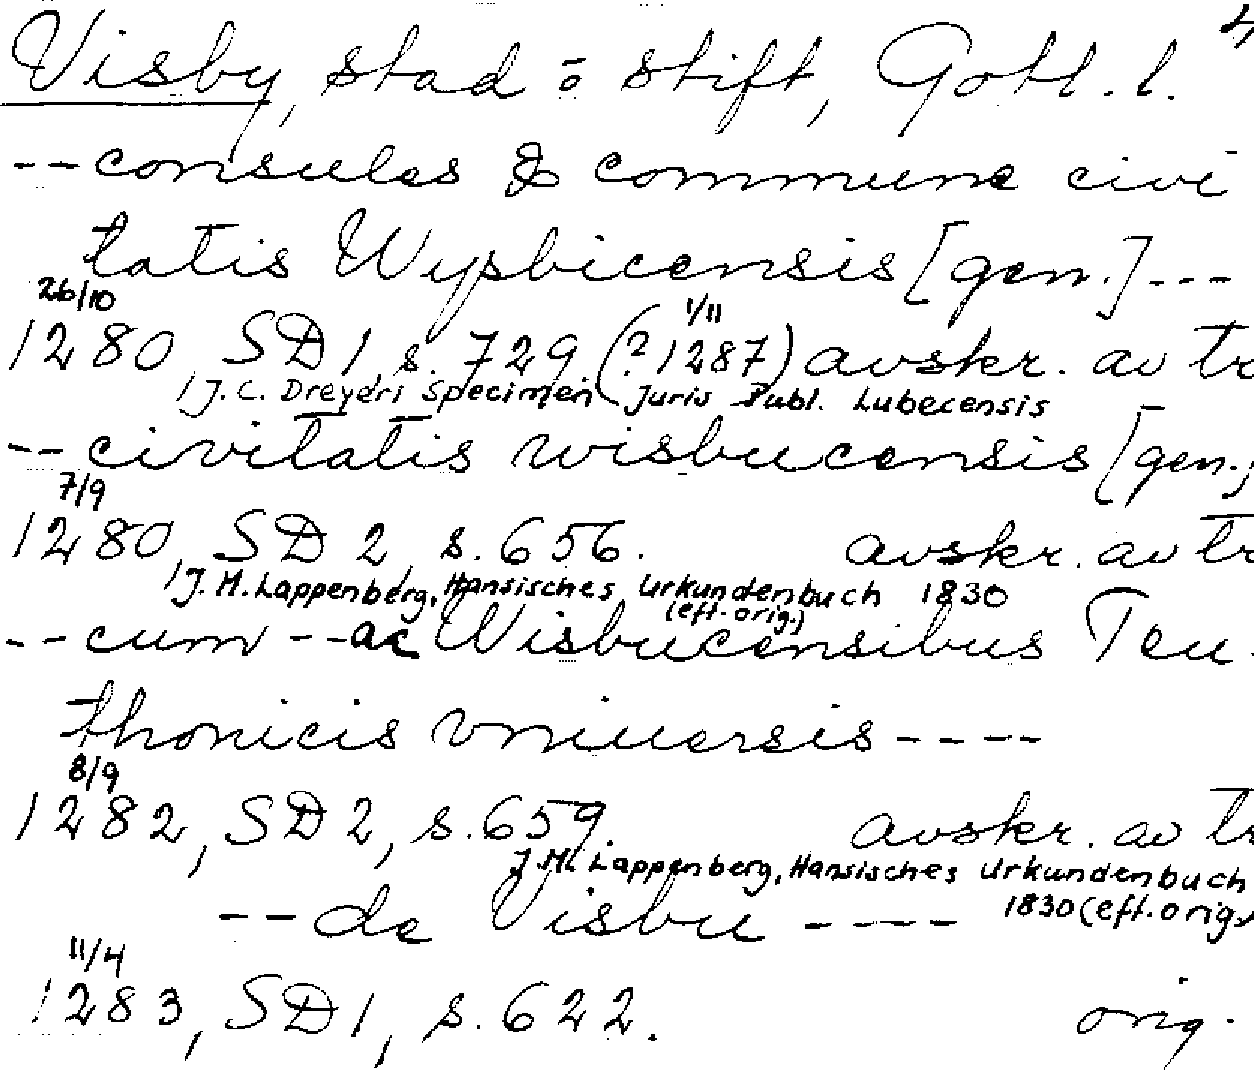 Visby, stad o stift, Gotl. l. 4
-- consules & commune civi
tatis Wysbicensis [gen.] ---
26/10 1/11
1280, SD 1, s. 729 (? 1287) avskr. av tr
/J. C. Dreyeri Specimen Juris Publ. Lubecensis
-- civitatis wisbucensis [gen.]
7/9
1280, SD 2, s. 656. avskr. av tr
/J. M. Lappenberg, Hansisches Urkundenbuch 1830
(eft. orig.)
-- cum -- ac Wisbucensibus Teu-
thonicis vniuersis ----
8/9
1282, SD 2, s. 659. avskr. av tr
J. M. Lappenberg, Hansisches Urkundenbuch
1830 (eft. orig.)
-- de Visbu ----
11/4
1283, SD 1, s. 622. orig.